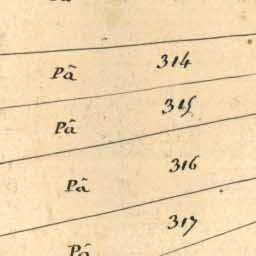 Pã 314
Pã 315
Pã 316
Pã 317